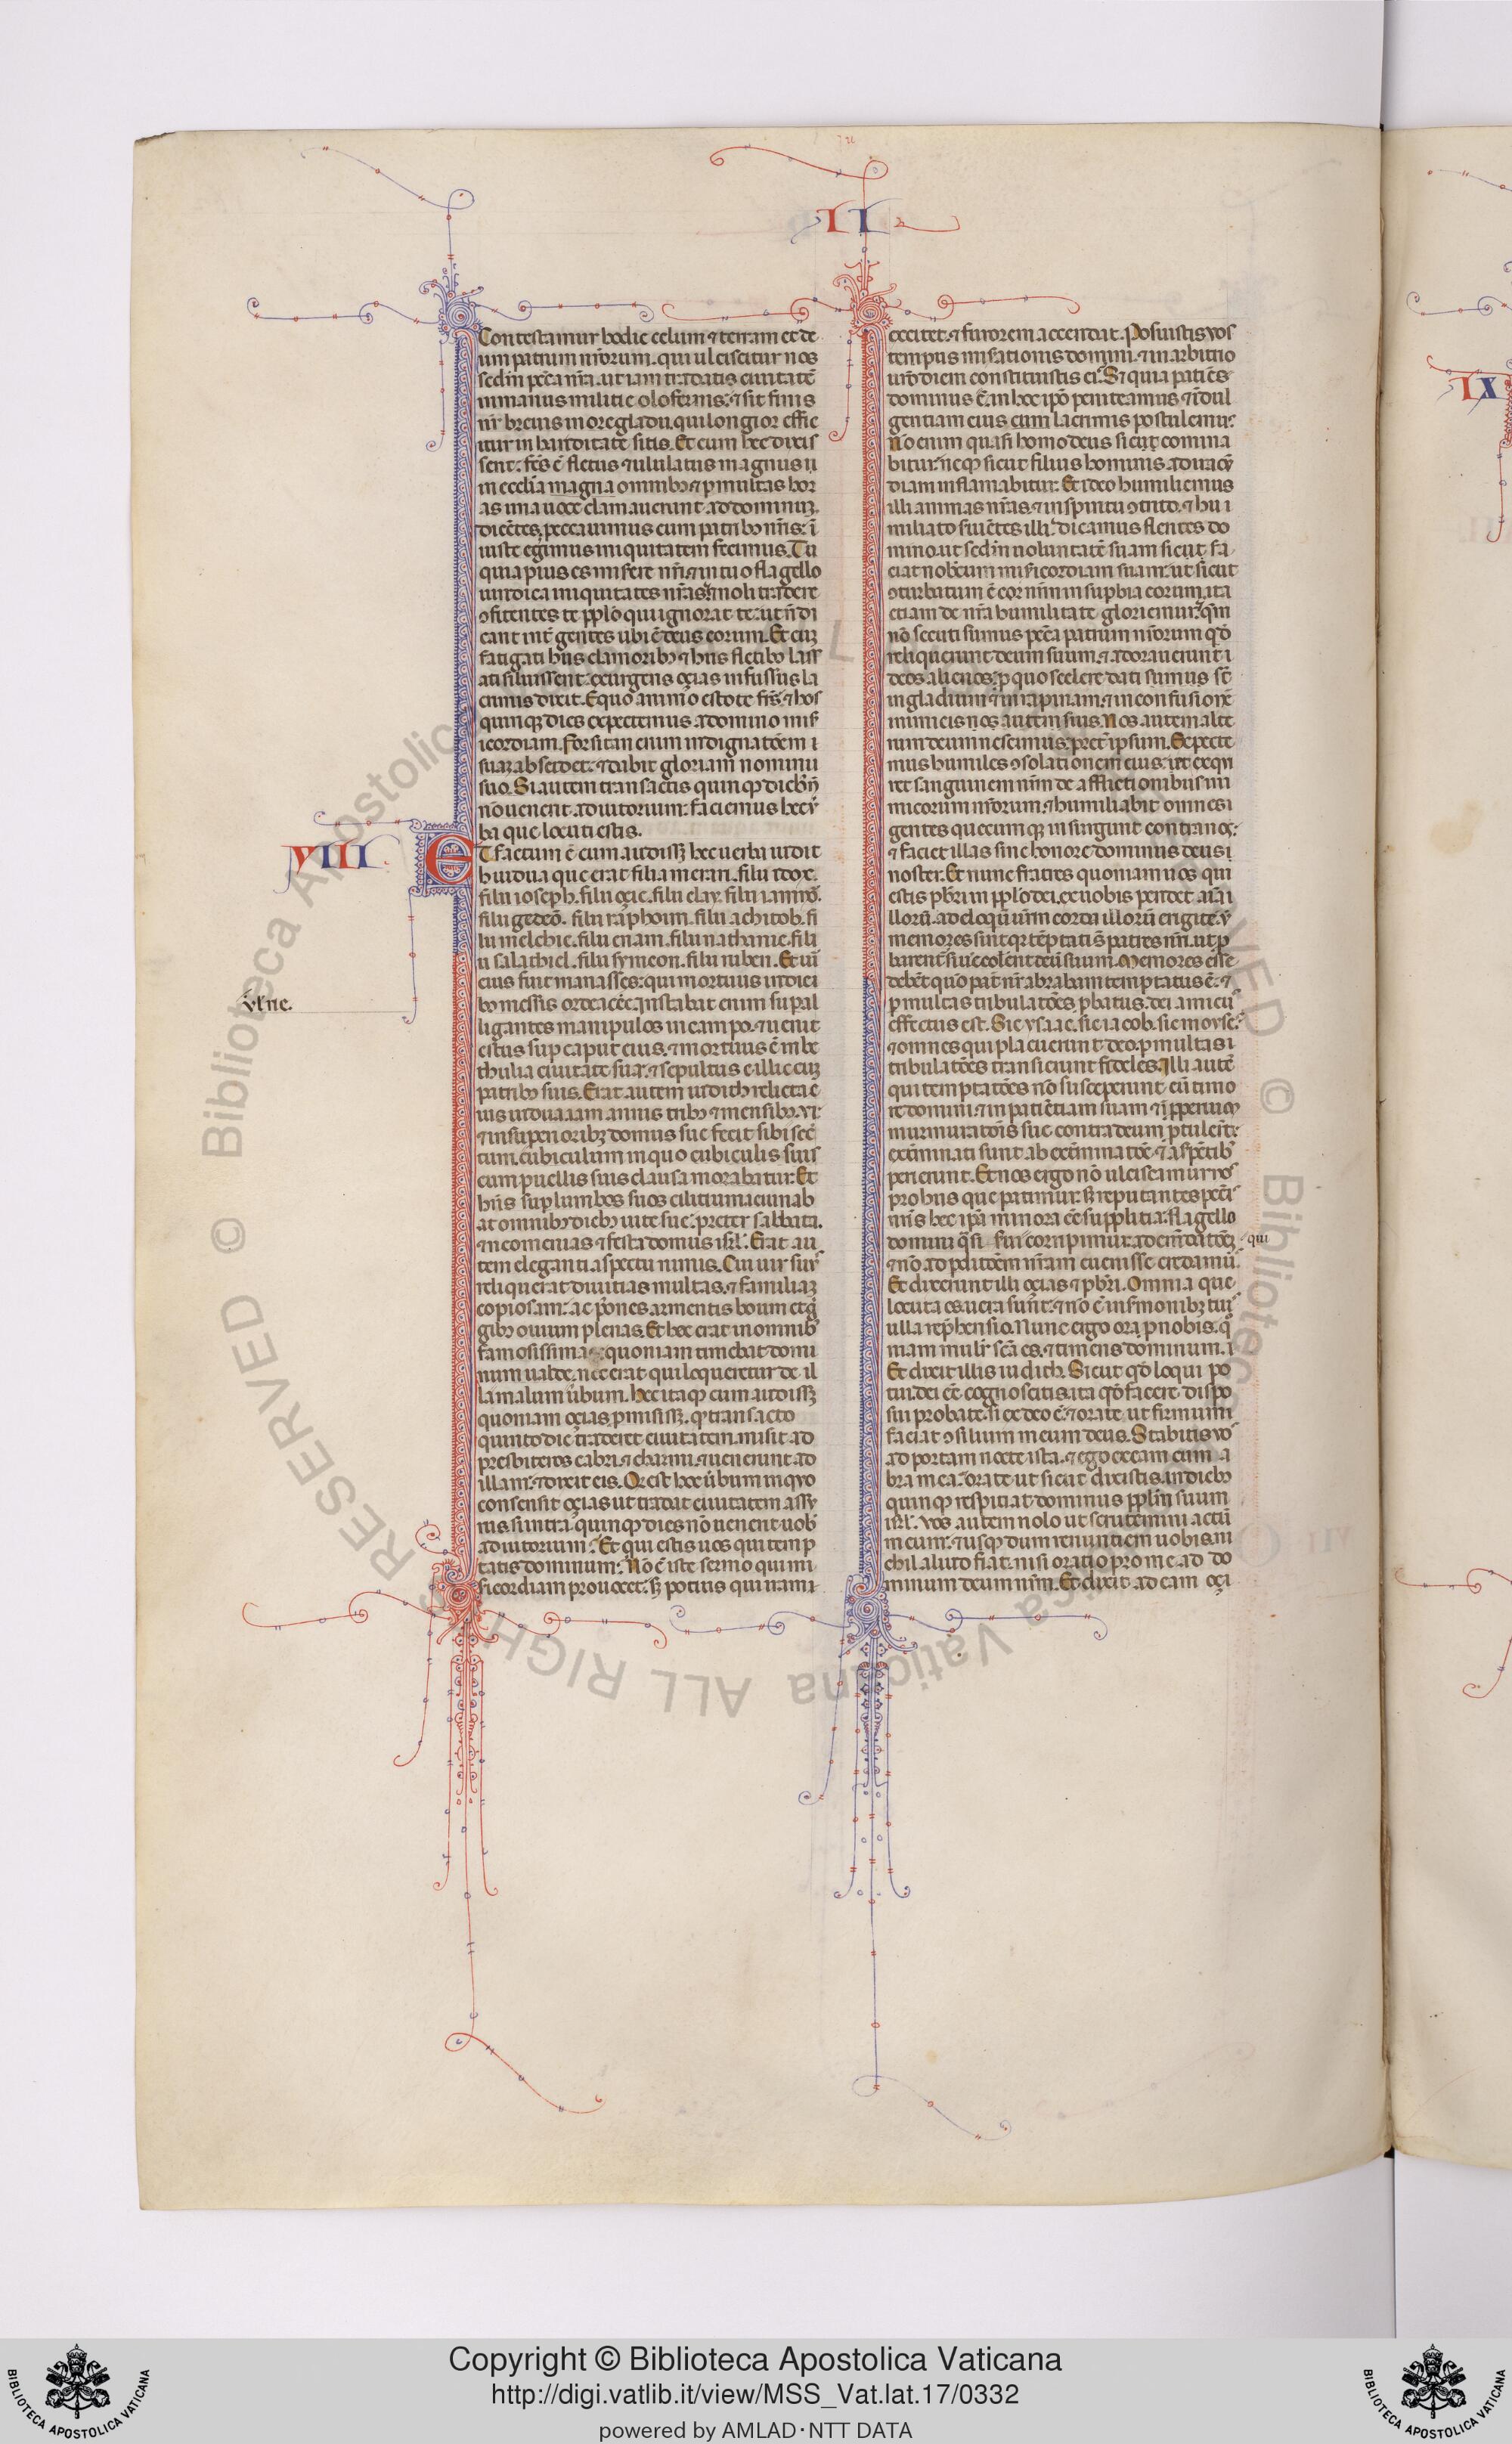 II
Contestamur hodie celum ⁊ terram et de
um patrum nr̄orum. qui ulciscitur nos
sedm̄ pc̄ca nr̄a. ut iam tradatis ciuitatē
in manus militie olofernis: ⁊ sit finis
nr̄ breuis in ore gladii. qui longior effic
itur in hariditate sitis. Et cum hec dixis
sent: fc̄s ē fletus ⁊ ululatus magnus
in ecclīa magna omnibꝫ ⁊ p multas hor
as una uoce clamauerunt ad dominum
dicētes, peccauimus cum patribꝫ nr̄is: ī
iuste egimus iniquitatem fecimus. Tu
quia pius es miserere nr̄i. ⁊ in tuo flagello
uindica iniquitates nr̄as. ⁊ noli tradere
ꝯfitentes te pplo qui ignorat te: ut n̄ di
cant int̄ gentes ubi ē deus eorum. Et cuꝫ
fatigati hiis clamoribꝫ ⁊ hiis fletibꝫ lass
ati siluissent. exurgens oçias infusus la
crimis dixit. Equo animo estote frs̄. ⁊ hos
quinqꝫ dies expectemus a domino mis̄
icordiam. Forsitan enim indignatōem
suaꝫ abscidet. ⁊ dabit gloriam nomini
suo. Si autem transactis quinqꝫ diebꝫ
nō uenerit adiutorium. faciemus hec ū
ba que locuti estis.
VIII
ET factum ē cum audissꝫ hec uerba iudit
h uidua que erat filia merari. filii idox.
filii ioseph. filii oçie. filii elay. filii iamnō.
filii gedeō. filii raphoim. filii achitob. fi
lii melchie. filii enam. filii nathanie. fili
i salathiel. filii symeon. filii ruben. Et uir
eius fuit manasses: qui mortuus in diei
bꝫ messis ordeacēe. Instabat enim super al
ligantes manipulos in campo. ⁊ uenit
estus sup caput eius. ⁊ mortuus ē in be
thulia ciuitate sua. ⁊ sepultus ē illic cuꝫ
patribꝫ suis. Erat autem iudith relicta e
ius uidua iam annis tribꝫ ⁊ mensibꝫ. vi.
⁊ in superioribꝫ domus sue fecit sibi secē
tum. cubiculum in quo cubiculis suis
cum puellis suis clausa morabatur. Et
hn̄s sup lumbos suos cilitium ieiunab
at omnibꝫ diebꝫ uite sue. preter sabbata.
⁊ neomenias ⁊ festa domus isrl̄. Erat au
tem eleganti aspectu nimis. Cui uir suꝰ
reliquerat diuitias multas. ⁊ familiaꝫ
copiosam: ac p̄ones armentis boum et g̍
gibꝫ ouium plenas. Et hec erat in omnibꝰ
famosissima quoniam timebat domi
num ualde. nec erat qui loqueretur de il
la malum ūbum. Hec itaqꝫ cum audissꝫ
quoniam oçias. pmisissꝫ. ꝙ transacto
quinto die traderet ciuitatem. misit ad
presbiteros cabri. ⁊ charmi. ⁊ uenerunt ad
illam. ⁊ dixit eis. Qd̄ est hec ūbum in quo
consensit oçias ut tradat ciuitatem assy
riis si intra quinqꝫ dies nō uenerit uob̄
adiutorium. Et qui estis uos qui temp
tatis dominum. Nō ē iste sermo qui mi
sicordiam prouocet. sꝫ potius qui iram
v̄lne.
excitet. ⁊ furorem accendat. Posuistis vos
tempus misationis domini. ⁊ in arbitrio
ur̄o diem constituistis ei. Sꝫ quia patiēs
dominus ē in hoc ip̄o peniteamus ⁊ indul
gentiam eius cum lacrimis postulemus.
Nō enim quasi homo deus sicut comina
bitur. neqꝫ sicut filius hominis ad iracū
diam inflamabitur. Et ideo humiliemus
illi animas nr̄as. ⁊ in spiritu ꝯtrito. ⁊ hu
miliato suiētes illi. dicamus flentes do
mino. ut sedm̄ uoluntatē suam sicut fa
ciat nobiscum misericordiam suam. ut sicut
ꝯturbatum ē cor nr̄m in supbia eorum. ita
etiam de nr̄a humilitate gloriemur. qm̄
nō secuti sumus pc̄ca patrum nr̄orum qd̄
reliquerunt deum suum. ⁊ adorauerunt
deos alienos. p quo scelere dati sumus sc̄
in gladium ⁊ in rapinam. ⁊ in confusionē
inimicis nos autem suis. Nos autem alte
rum deum nescimus. pret̄ ipsum. Expecte
mus humiles ꝯsolationem eius. ut exqui
ret sanguinem nr̄m de afflictionibus ini
micorum nr̄orum. ⁊ humiliabit omnes
gentes quecumqꝫ insurgunt contra nos.
⁊ faciet illas sine honore dominus deus
noster. Et nunc fratres quoniam uos qui
estis pbr̄i in pplo dei. ex uobis pendet aīa i
llorū. ad eloqū ur̄m corda illorū erigite. ū
memores sint qr tēptati s̄ patres nr̄i. ut p
barent̄ si ūe colent deū suum. Memores esse
debēt quō pat̄ nr̄ abraham temptatus ē. ⁊
p multas tribulatōes pbatus. dei amicū
effectus est. Sic ysaac. sic iacob. sic moyses
⁊ omnes qui placuerunt deo. p multas
tribulatōes transierunt fideles. Illi autē
qui temptatōes nō susceperunt cū timo
re domini. ⁊ in patiētiam suam
murmuratōis sue contra deum ptulert̄.
extm̄inati sunt ab extm̄inatōe. ⁊ a serpētibꝰ
perierunt. Et nos ergo nō ulciscamur nos
pro hiis que patimur. sꝫ reputantes pc̄ti
nr̄is hec ip̄a minora ēe supplitia. flagello
domini q̄si sui corripimur. ad emēdatōeꝫ
qui
⁊ nō ad pditōem nr̄am euenisse credamꝰ.
Et dixerunt illi oçias ⁊ pbr̄i. Omnia que
locuta es uera sunt. ⁊ nō ē in sr̄monibꝫ tuis
ulla rephensio. Nunc ergo ora p nobis. qꝰ
niam mulr̄ scā es. ⁊ timens dominum.
Et dixit illis iudith. Sicut qd̄ loqui po
tui. dei eē cognoscitis. ita qd̄ facere dispo
sui probate. si ex deo ē. ⁊ orate. ut firmum
faciat ꝯsilium meum deus. Stabitis uos
ad portam nocte ista. ⁊ ego exeam cum a
bra mea. orate ut sicut dixistis. in diebꝫ
quinqꝫ respitiat dominus pplm̄ suum
isrl̄. Vos autem nolo ut scrutemini actū
meum. ⁊ usqꝫ dum renuntiem uobis. ni
chil aliud fiat. nisi oratio pro me ad do
minum deum nr̄m. Et dixit ad eam oçi
IX
Copyright © Biblioteca Apostolica Vaticana
http://digi.vatlib.it/view/MSS_Vat.lat.17/0332
powered by AMLAD·NTT DATA
BIBLIOTECA APOSTOLICA VATICANA
BIBLIOTECA APOSTOLICA VATICANA
© Biblioteca Apostolica Vaticana ALL RIGHTS RESERVED